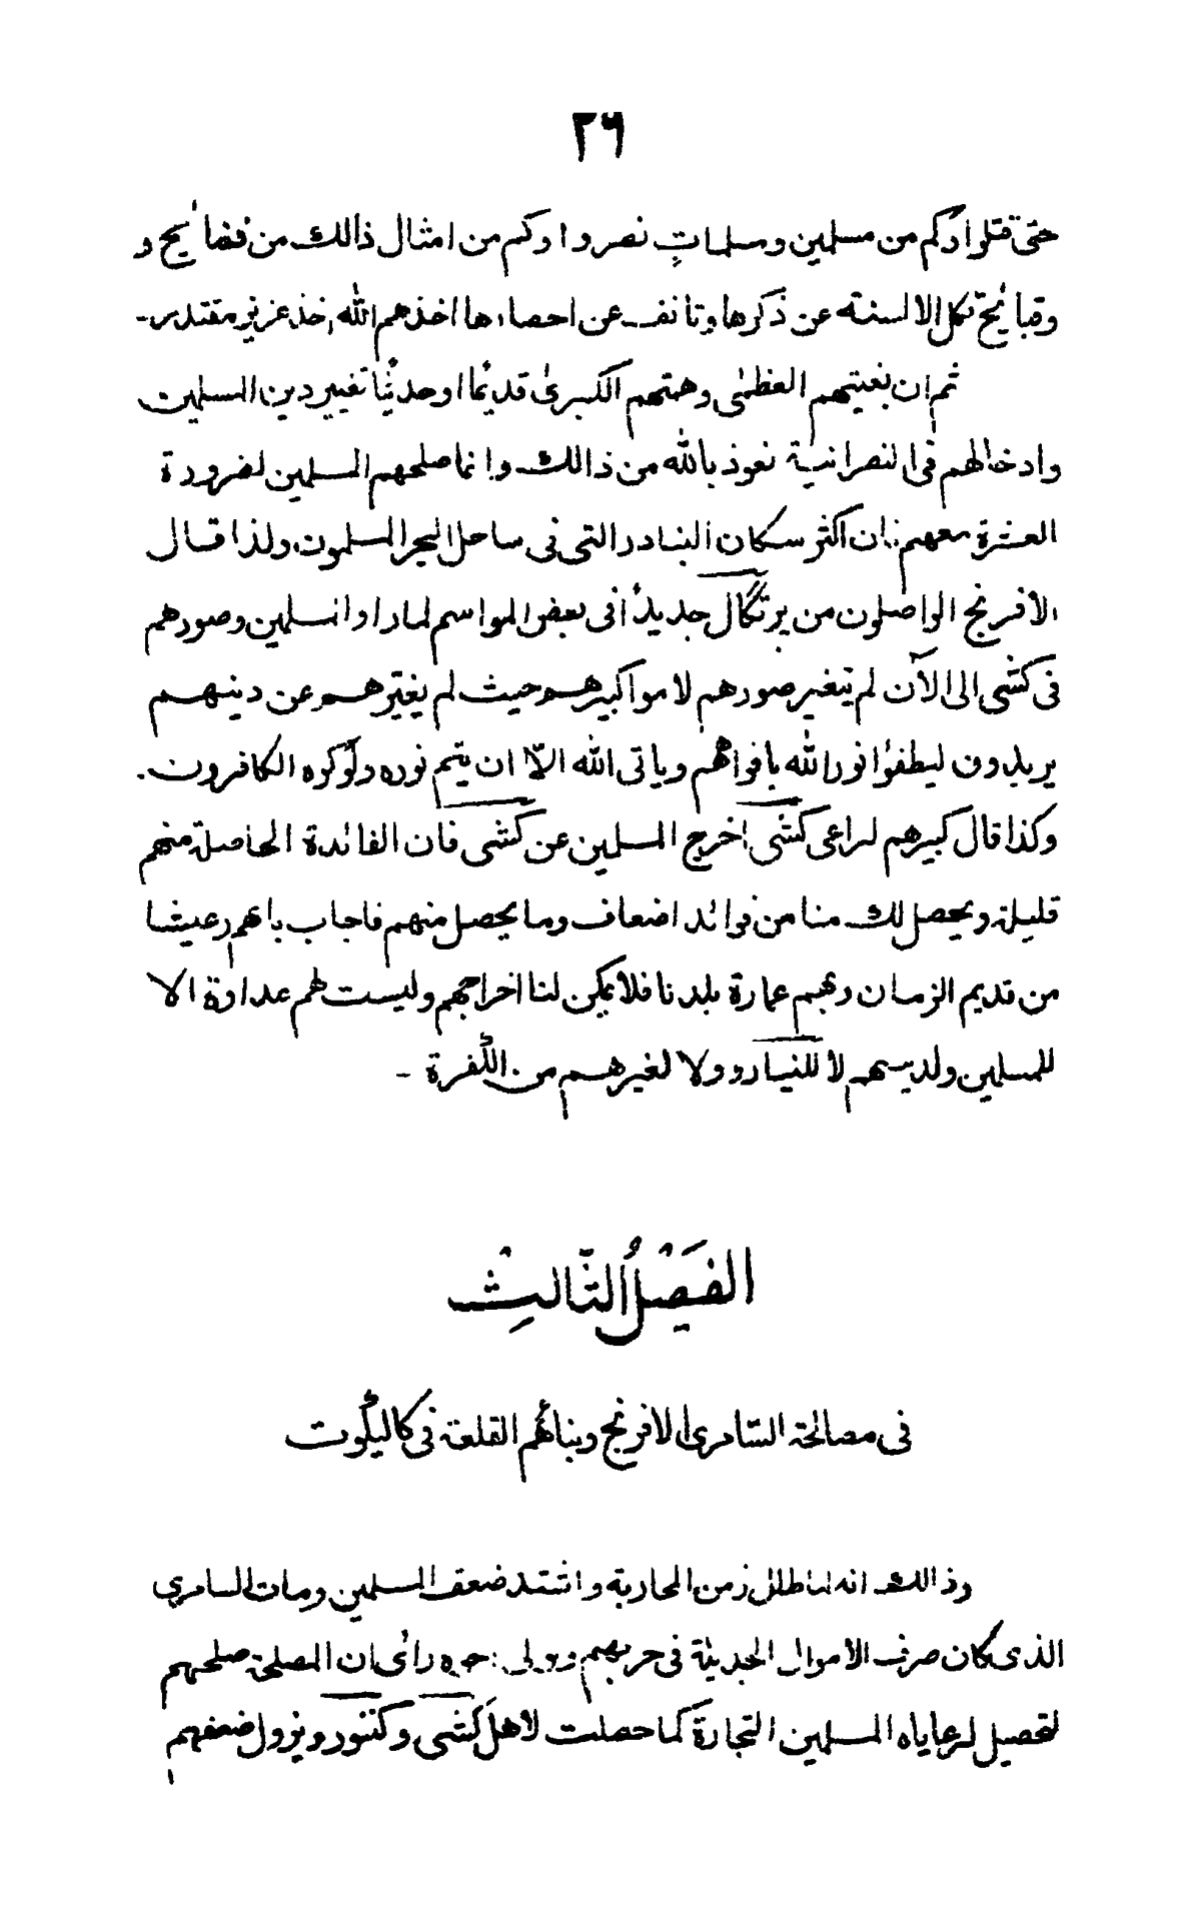 ٣٦
حتى قتلوا وكم من مسلمين ومسلماتٍ نصروا وكم من امثال ذالك من فضائيح و
وقبائيح تكل الالسنة عن ذكرها وتانف عن احصاءها اخذهم الله اخذ عزيز مقتدر -
ثم ان بغيتهم العظمٰى وهمتهم الكبرىٰ قديمًا اوحديثًا تغيير دين المسلمين
وادخالهم فى النصرانية نعوذ بالله من ذالك وانما صلحهم المسلمين لضرورة
العشرة معهم فان اكثر سكان البنادر التى فى ساحل البحر المسلمون ولذا قال
الافرنج الواصلون من پرتگال جديدًا فى بعض المواسم لماراوا المسلمين وصورهم
فى كشى الى الآن لم تتغير صورهم لاموا كبيرهم حيث لم يغيّرهم عن دينهم
يريدون ليطفؤا نور الله بافواههم وياتى الله الّا ان يتم نوره ولَوكره الكافرون .
وكذا قال كبيرهم لراعى كشى اخرج المسلمين عن كشى فان الفائدة الحاصلة منهم
قليلة ويحصل لك منا من فوائد اضعاف وما يحصل منهم فاجاب بانهم رعيتنا
من قديم الزمان وبهم عمارة بلدنا فلا يمكن لنا اخراجهم وليست لهم عداوة الا
للمسلمين ولدينهم لا للنيارو ولا لغيرهم من الكفرة -
الفَصْلُ الثّالِثْ
فى مصالحة السّامرى الافرنج وبنائهم القلعة فى كاليكوت
وذالك انه لما طال زمن المحاربة واشتد ضعف المسلمين ومات السامري
الذى كان صرف الاموال الجديثة فى حربهم وولى اخوه رائى ان المصلحة صلحهم
لتحصيل لرعاياه المسلمين التجارة كما حصلت لاهل كشى وكننور ويزول ضعفهم